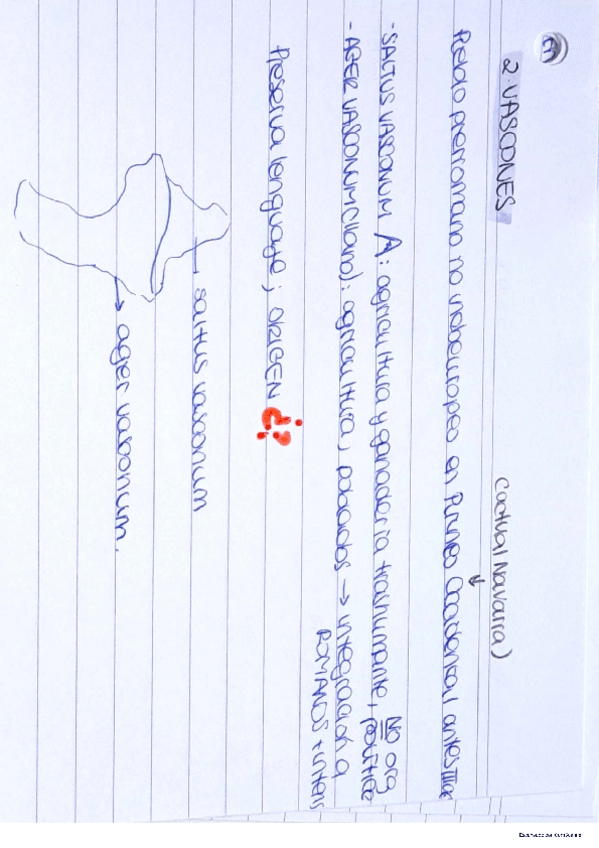 2. VASCONES
(actual Navarra)
Pueblo prerromano no indoeuropeo en Pirineo Occidental antes
- SALTUS VASCONUM : agricultura y ganadería trashumante, NO org
política
- AGER VASCONUM (llano): agricultura, poblados → integración a
ROMANOS +
Preserva lenguaje; ORIGEN ¿?
saltus vasconum
→ ager vasconum.